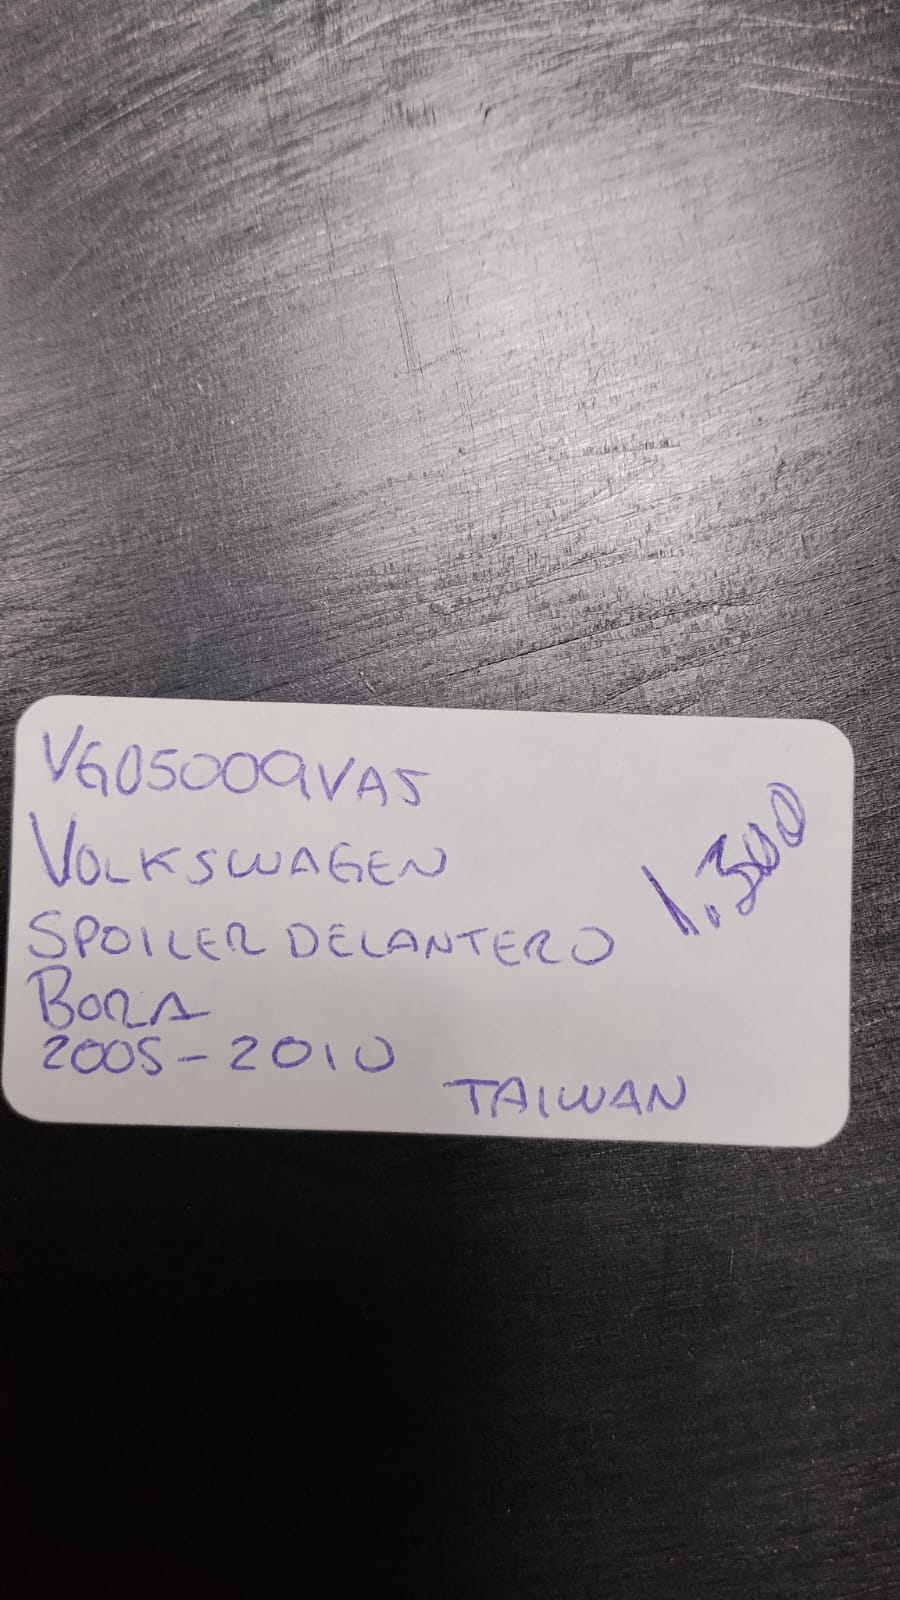 VG05009VA5
VOLKSWAGEN
SPOILER DELANTERO
BORA
2005-2010
TAIWAN
1.300